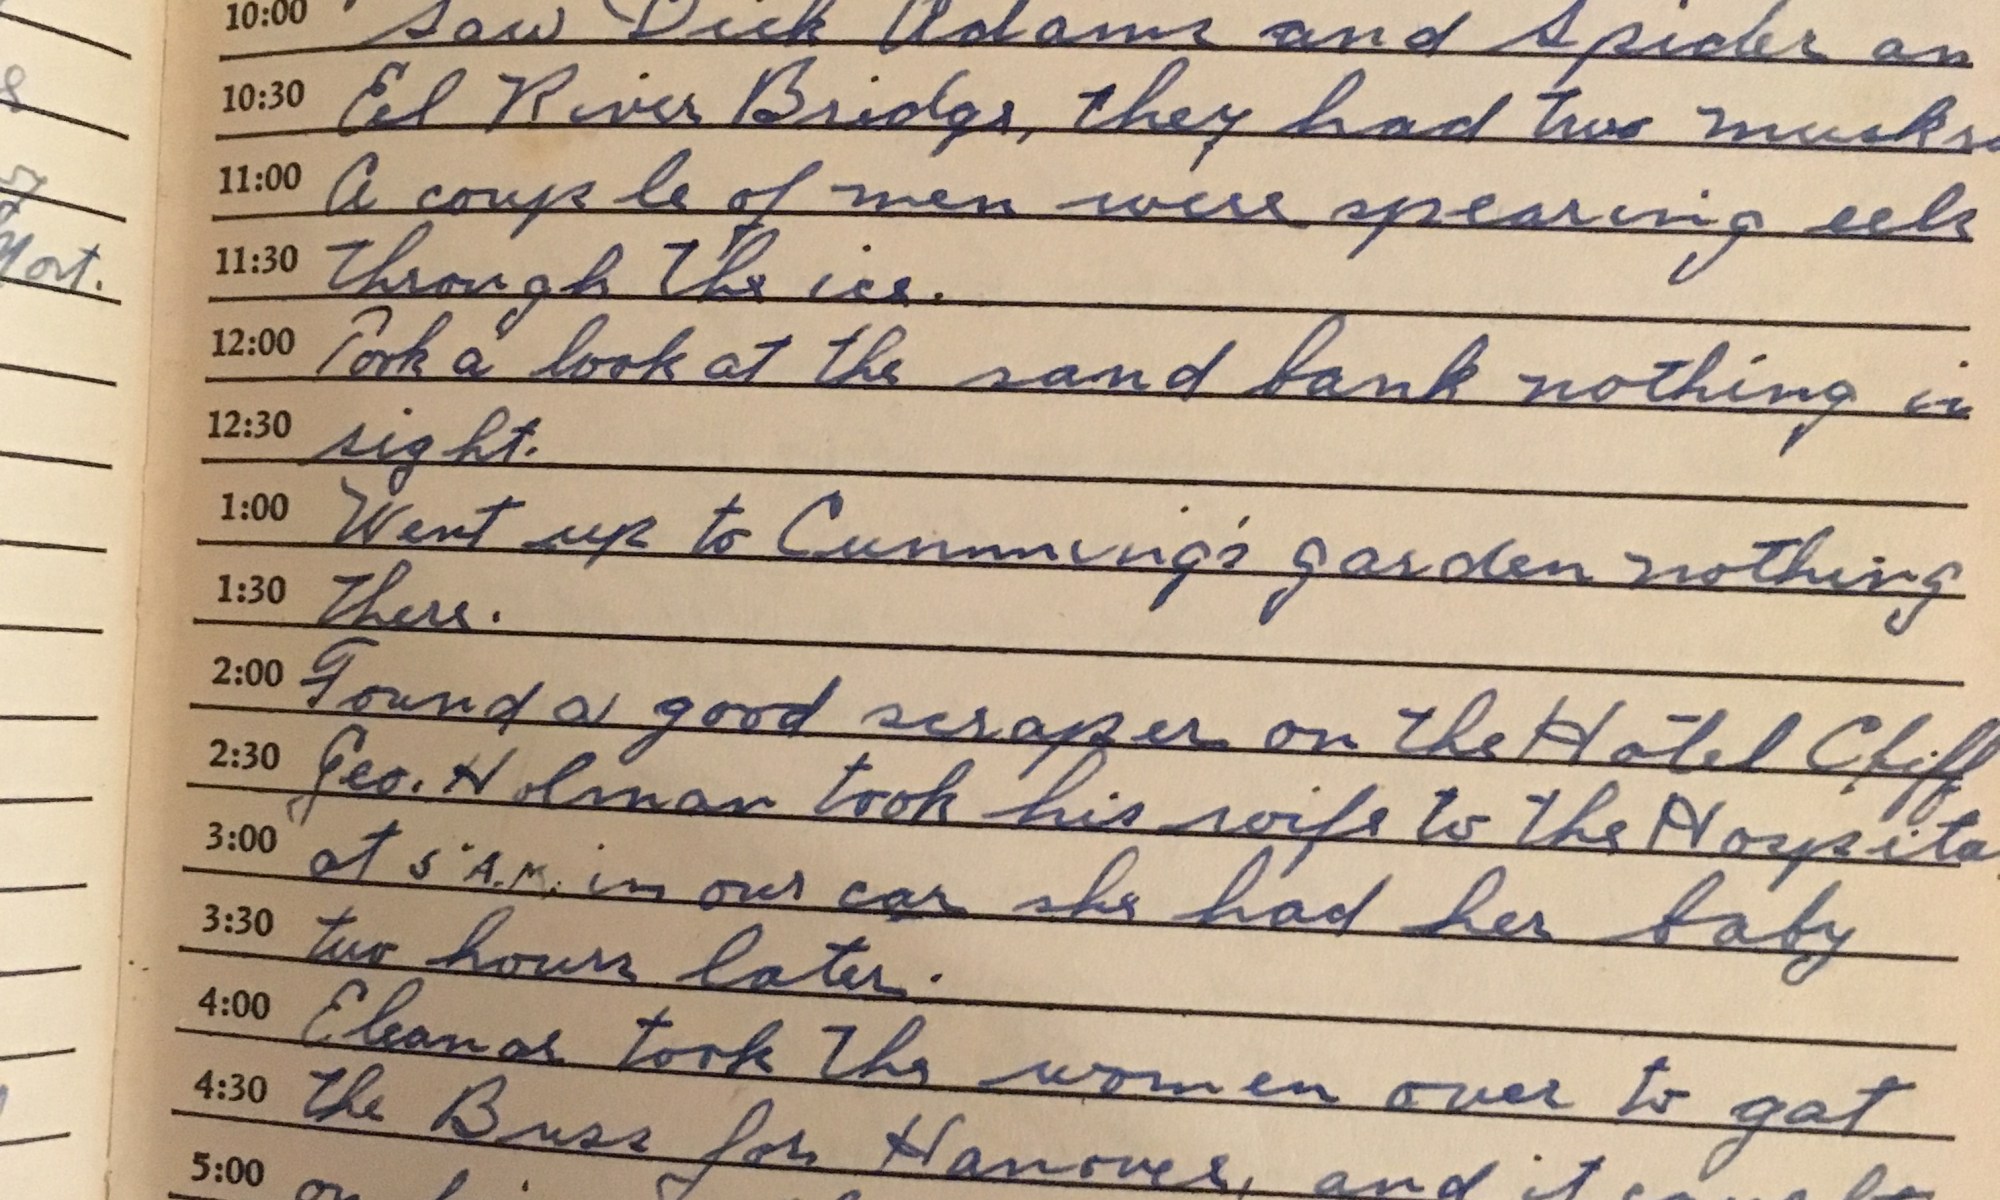 10:00 Saw Dick Adams and Spider on
10:30 Eel River Bridge, they had two muskra
11:00 A couple of men were spearing eels
Mort.
11:30 through the ice.
12:00 Took a look at the sand bank nothing in
12:30 sight.
1:00 Went up to Cumming's garden nothing
1:30 there.
2:00 Found a good scraper on the Hotel Cliff
2:30 Geo. Holman took his wife to the Hospita
3:00 at 5 A.M. in our car she had her baby
3:30 two hours later.
4:00 Eleanor took the women over to gat
4:30 the Buss for Hanover, and it
5:00 on